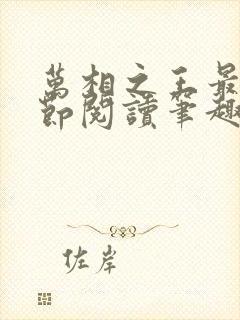 萬相之王最
節閱讀筆趣
佐岸